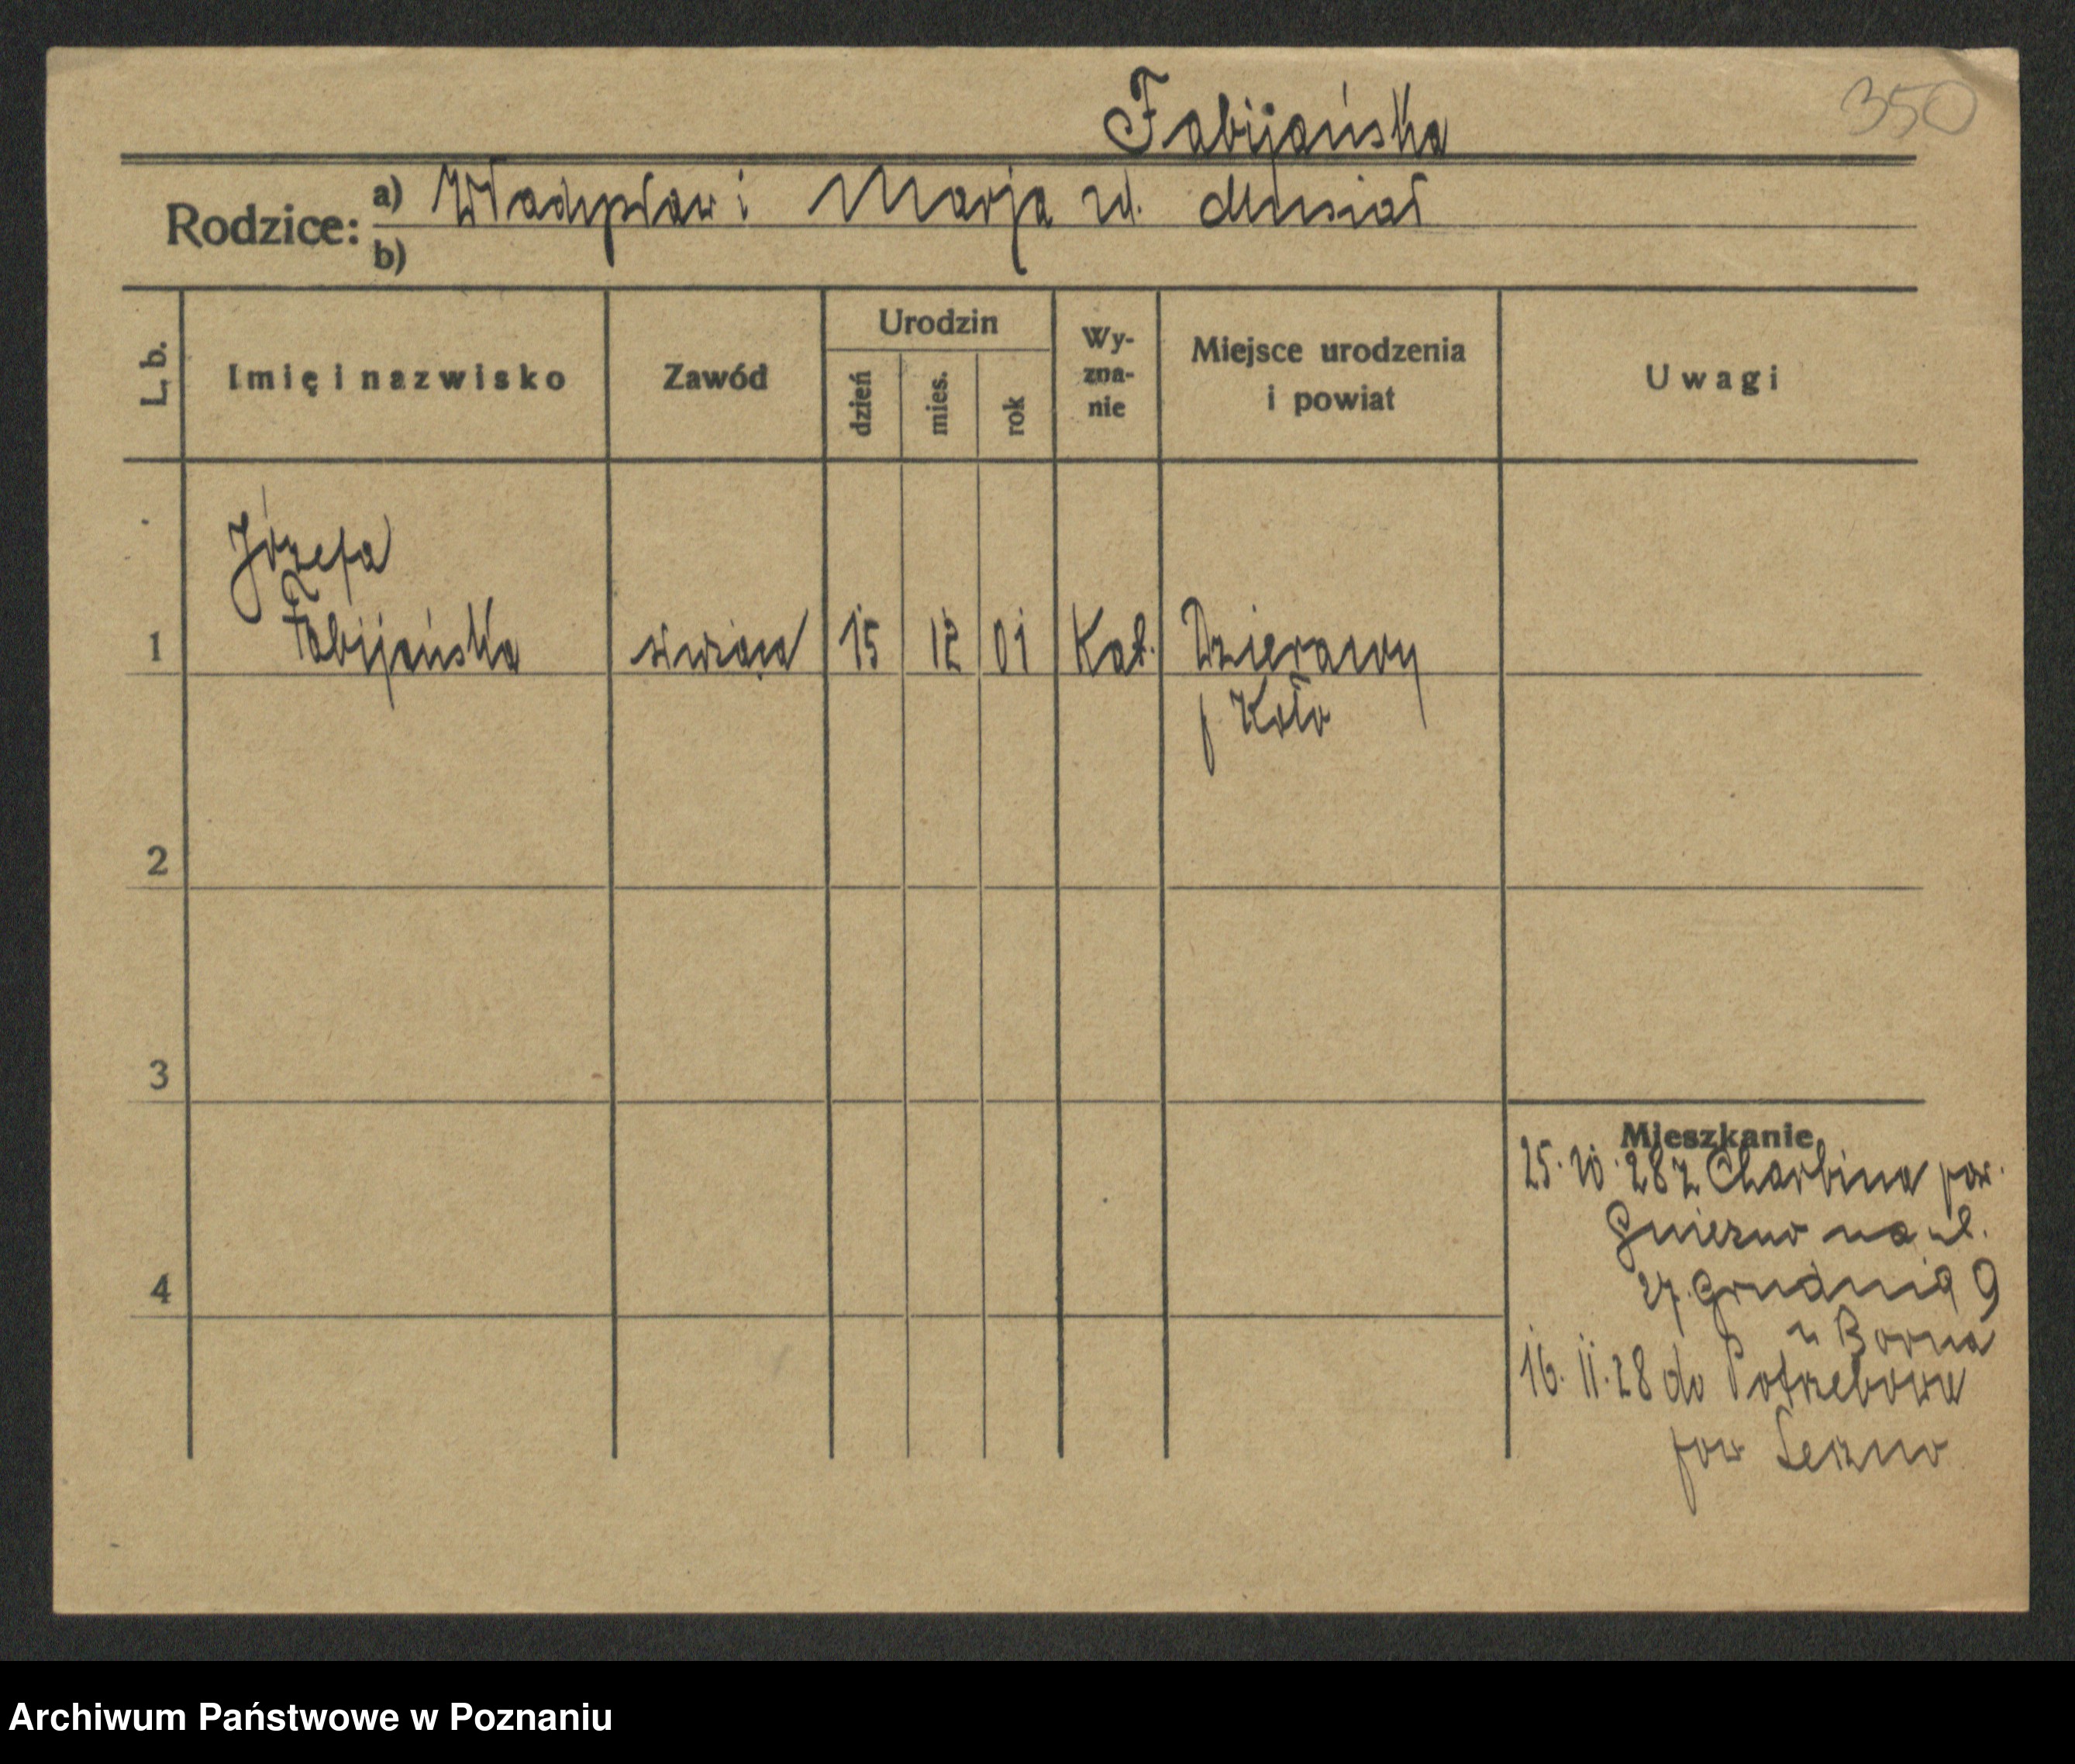 Fabijańska
350
Rodzice: a) Władysław i Marja zd. Musiał
b)
L. b.
Imię i nazwisko
Zawód
Urodzin
dzień
mies.
rok
Wy-
zna-
nie
Miejsce urodzenia
i powiat
Uwagi
Józefa
1 Fabijańska służąca 15 12 01 Kat. Dzierawy
p Koło
2
3
4
Mieszkanie
25.10.28 z Charbina pow.
Gniezno na ul.
27. Grudnia 9
u Borna
16.11.28 do
pow Leszno
Archiwum Państwowe w Poznaniu